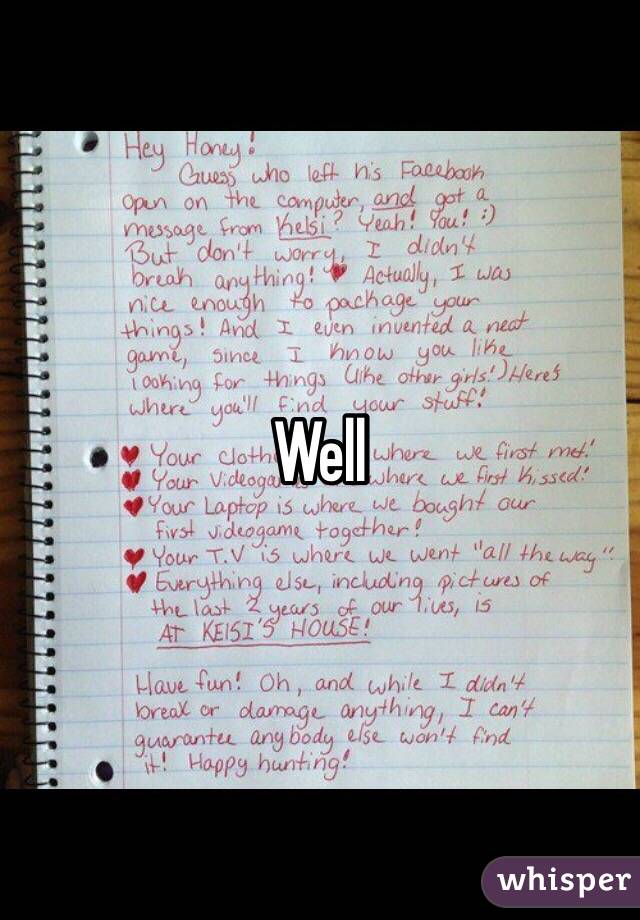 Hey Honey!
Guess who left his Facebook
open on the computer, and got a
message from Kelsi? Yeah! You! :)
But don't worry, I didn't
break anything! ♥ Actually, I was
nice enough to package your
things! And I even invented a neat
game, since I know you like
looking for things (like other girls!) Here's
where you'll find your stuff!
♥ Your where we first met!
♥ Your where we first kissed!
Well
♥ Your Laptop is where we bought our
first videogame together!
♥ Your T.V is where we went "all the way"!
♥ Everything else, including pictures of
the last 2 years of our lives, is
AT KElSI'S HOUSE!
Have fun! Oh, and while I didn't
break or damage anything, I can't
guarantee anybody else won't find
it! Happy hunting!
whisper